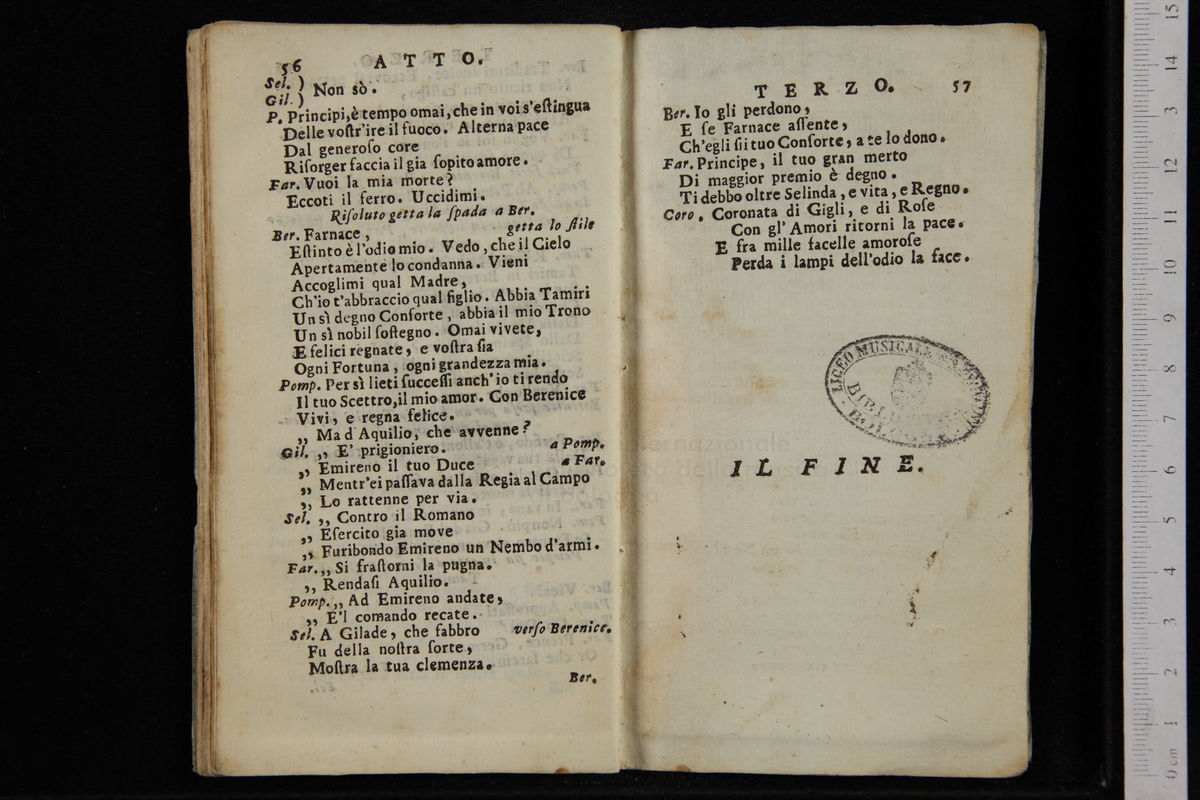 56
ATTO.
Sel. )
Gil. ) Non sò.
P. Principi, è tempo omai, che in voi s'eſtingua
Delle voſtr'ire il fuoco. Alterna pace
Dal generoſo core
Riſorger faccia il gia ſopito amore.
Far. Vuoi la mia morte?
Eccoti il ferro. Uccidimi.
Riſoluto getta la ſpada a Ber.
Ber. Farnace, getta lo ſtile
Eſtinto è l'odio mio. Vedo, che il Cielo
Apertamente lo condanna. Vieni
Accoglimi qual Madre,
Ch'io t'abbraccio qual figlio. Abbia Tamiri
Un sì degno Conſorte, abbia il mio Trono
Un sì nobil ſoſtegno. Omai vivete,
E felici regnate, e voſtra ſia
Ogni Fortuna, ogni grandezza mia.
Pomp. Per sì lieti ſucceſſi anch'io ti rendo
Il tuo Scettro, il mio amor. Con Berenice
Vivi, e regna felice.
,, Ma d'Aquilio, che avvenne?
Gil. ,, E' prigioniero. a Pomp.
,, Emireno il tuo Duce a Far.
,, Mentr'ei paſſava dalla Regia al Campo
,, Lo rattenne per via.
Sel. ,, Contro il Romano
,, Eſercito gia move
,, Furibondo Emireno un Nembo d'armi.
Far. ,, Si fraſtorni la pugna.
,, Rendaſi Aquilio.
Pomp. ,, Ad Emireno andate,
,, E'l comando recate.
Sel. A Gilade, che fabbro verſo Berenice.
Fu della noſtra ſorte,
Moſtra la tua clemenza.
Ber.
TERZO. 57
Ber. Io gli perdono,
E ſe Farnace aſſente,
Ch'egli ſii tuo Conſorte, a te lo dono.
Far. Principe, il tuo gran merto
Di maggior premio è degno.
Ti debbo oltre Selinda, e vita, e Regno.
Coro. Coronata di Gigli, e di Roſe
Con gl'Amori ritorni la pace.
E fra mille facelle amoroſe
Perda i lampi dell'odio la face.
LICEO MUSICALE
IL FINE.